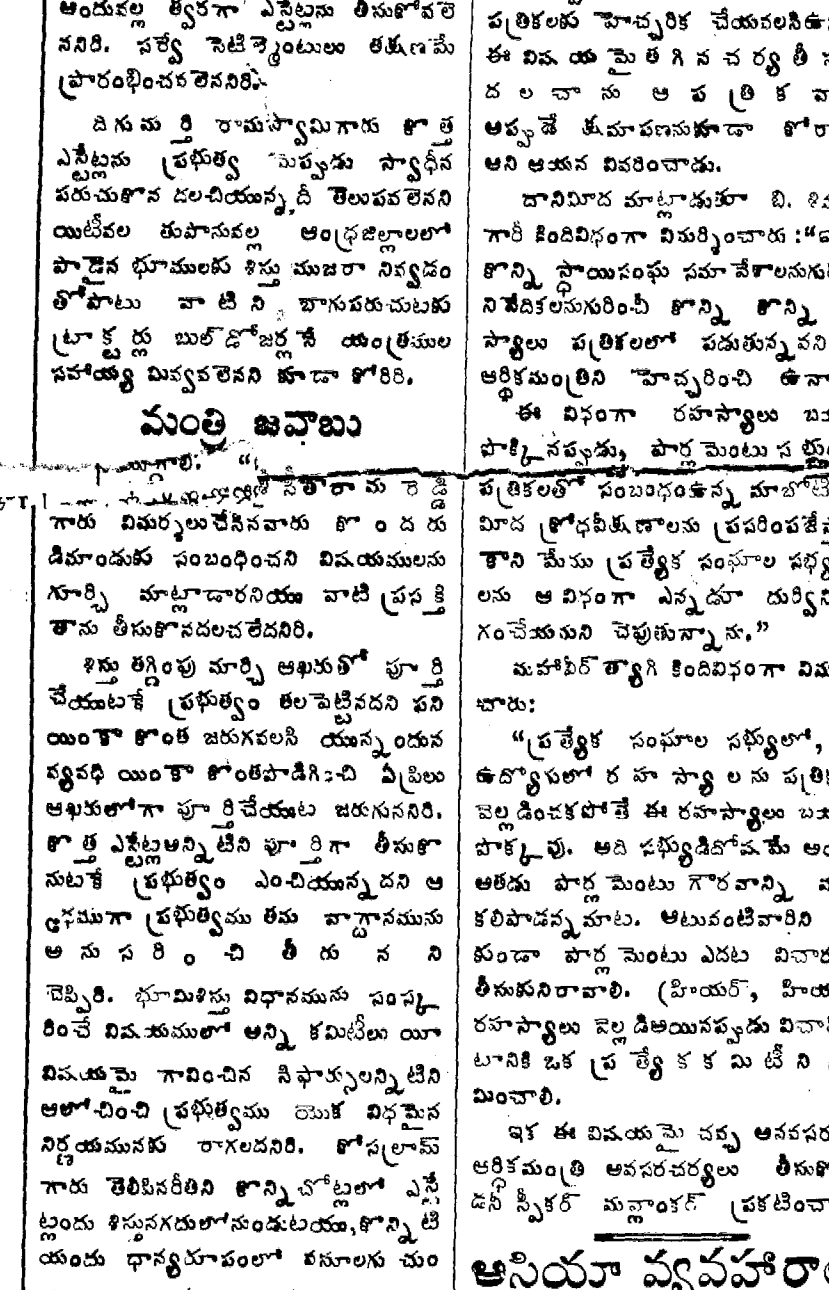 అందువల్ల త్వరగా ఎస్టేట్లను తీసుకోవలె
ననిరి. సర్వే సెటిల్మెంటులు తక్షణమే
ప్రారంభించవలెననిరి.
దిగుమర్తి రామస్వామిగారు కొత్త
ఎస్టేట్లను ప్రభుత్వ మెప్పుడు స్వాధీన
పరుచుకొన దలచియున్నదీ తెలుపవలెనని
యిటీవల తుపానువల్ల ఆంధ్రజిల్లాలలో
పాడైన భూములకు శిస్తు ముజరా నివ్వడం
తోపాటు వాటిని బాగుపరుచుటకు
ట్రాక్టర్లు బుల్‌డోజర్ల నే యంత్రముల
సహాయ్య మివ్వవలెనని కూడా కోరిరి.
మంత్రి జవాబు
సీతారామరెడ్డి
గారు విమర్శలుచేసినవారు కొందరు
డిమాండుకు సంబంధించని విషయములను
గూర్చి మాట్లాడారనియు వాటి ప్రసక్తి
తాను తీసుకొనదలచలేదనిరి.
శిస్తు తగ్గింపు మార్చి ఆఖరుతో పూర్తి
చేయుటకే ప్రభుత్వం తలపెట్టినదని పని
యింకా కొంత జరుగవలసి యున్నందున
వ్యవధి యింకా కొంతపొడిగించి ఏప్రిలు
ఆఖరులోగా పూర్తిచేయుట జరుగుననిరి.
కొత్త ఎస్టేట్లఅన్నిటిని పూర్తిగా తీసుకొ
నుటకే ప్రభుత్వం ఎంచియున్నదని ఆ
ప్రభుత్వము తమ వాగ్దానమును
అనుసరించి తీరునని
చెప్పిరి. భూమిశిస్తు విధానమును సంస్క
రించే విషయములో అన్ని కమిటీలు యీ
విషయమై గావించిన సిఫార్సులన్నిటిని
ఆలోచించి ప్రభుత్వము యొక విధమైన
నిర్ణయమునకు రాగలదనిరి. కోసలరామ్
గారు తెలిపినరీతిని కొన్నిచోట్లలో ఎస్టే
ట్లందు శిస్తునగదులోనుండుటయు, కొన్నిటి
యందు ధాన్యరూపంలో వసూలగు చుం
పత్రికలకు హెచ్చరిక చేయవలసిఉ
ఈ విషయమై తగినచర్య తీ
దలచాను ఆ పత్రిక
అప్పుడే క్షమాపణనుకూడా కోరా
అని ఆయన వివరించాడు.
దానిమీద మాట్లాడుతూ బి.
గారీ కిందివిధంగా విమర్శించారు :"
కొన్ని స్థాయిసంఘ సమావేశాలనుగు
నివేదికలనుగురించీ కొన్ని కొన్ని
స్యాలు పత్రికలలో పడుతున్నవని
ఆర్థికమంత్రిని హెచ్చరించి ఉనా
ఈ విధంగా రహస్యాలు బ
పొక్కినప్పుడు, పార్లమెంటు సభ్యు
పత్రికలతో సంబంధంఉన్న మాబోటి
మీద క్రోధవీక్షణాలను ప్రసరింపజే
కాని మేము ప్రత్యేక సంఘాల సభ్య
లను ఆ విధంగా ఎన్నడూ దుర్విని
గంచేయమని చెపుతున్నాను."
మహావీర్ త్యాగి కిందివిధంగా విమ
చారు:
"ప్రత్యేక సంఘాల సభ్యులో,
ఉద్యోసులో రహస్యాలను పత్రి
వెల్లడించకపోతే ఈ రహస్యాలు బ
పొక్కవు. అది సభ్యుడిదోషమే అ
ఆతడు పార్లమెంటు గౌరవాన్ని
కలిపాడన్నమాట. అటువంటివారిని
కుండా పార్లమెంటు ఎదట విచార
తీసుకునిరావాలి. (హియర్, హియ
రహస్యాలు వెల్లడిఅయినప్పుడు విచా
టానికి ఒక ప్రత్యేక కమిటీని
మించాలి.
ఇక ఈ విషయమై చర్చ అనవసర
ఆర్థికమంత్రి అవసరచర్యలు తీసుకొ
డనీ స్పీకర్ మవ్లాంకర్ ప్రకటించా
ఆసియా వ్యవహారా